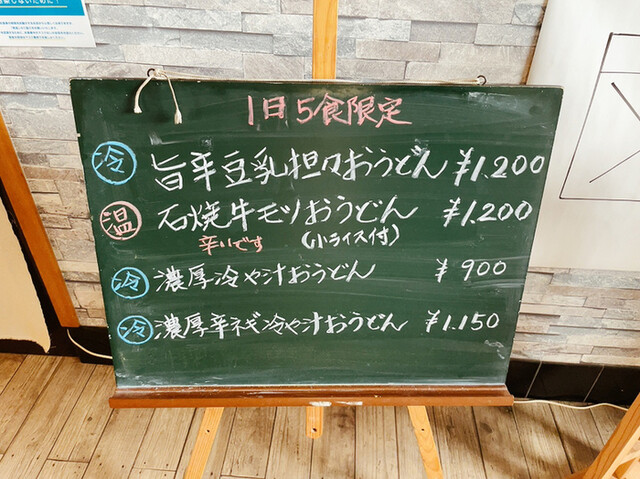 1日5食限定
冷 旨辛豆乳担々おうどん ¥1.200
温 石焼牛モツおうどん ¥1.200
辛いです (小ライス付)
冷 濃厚冷や汁おうどん ¥900
冷 濃厚辛ネギ冷や汁おうどん ¥1.150